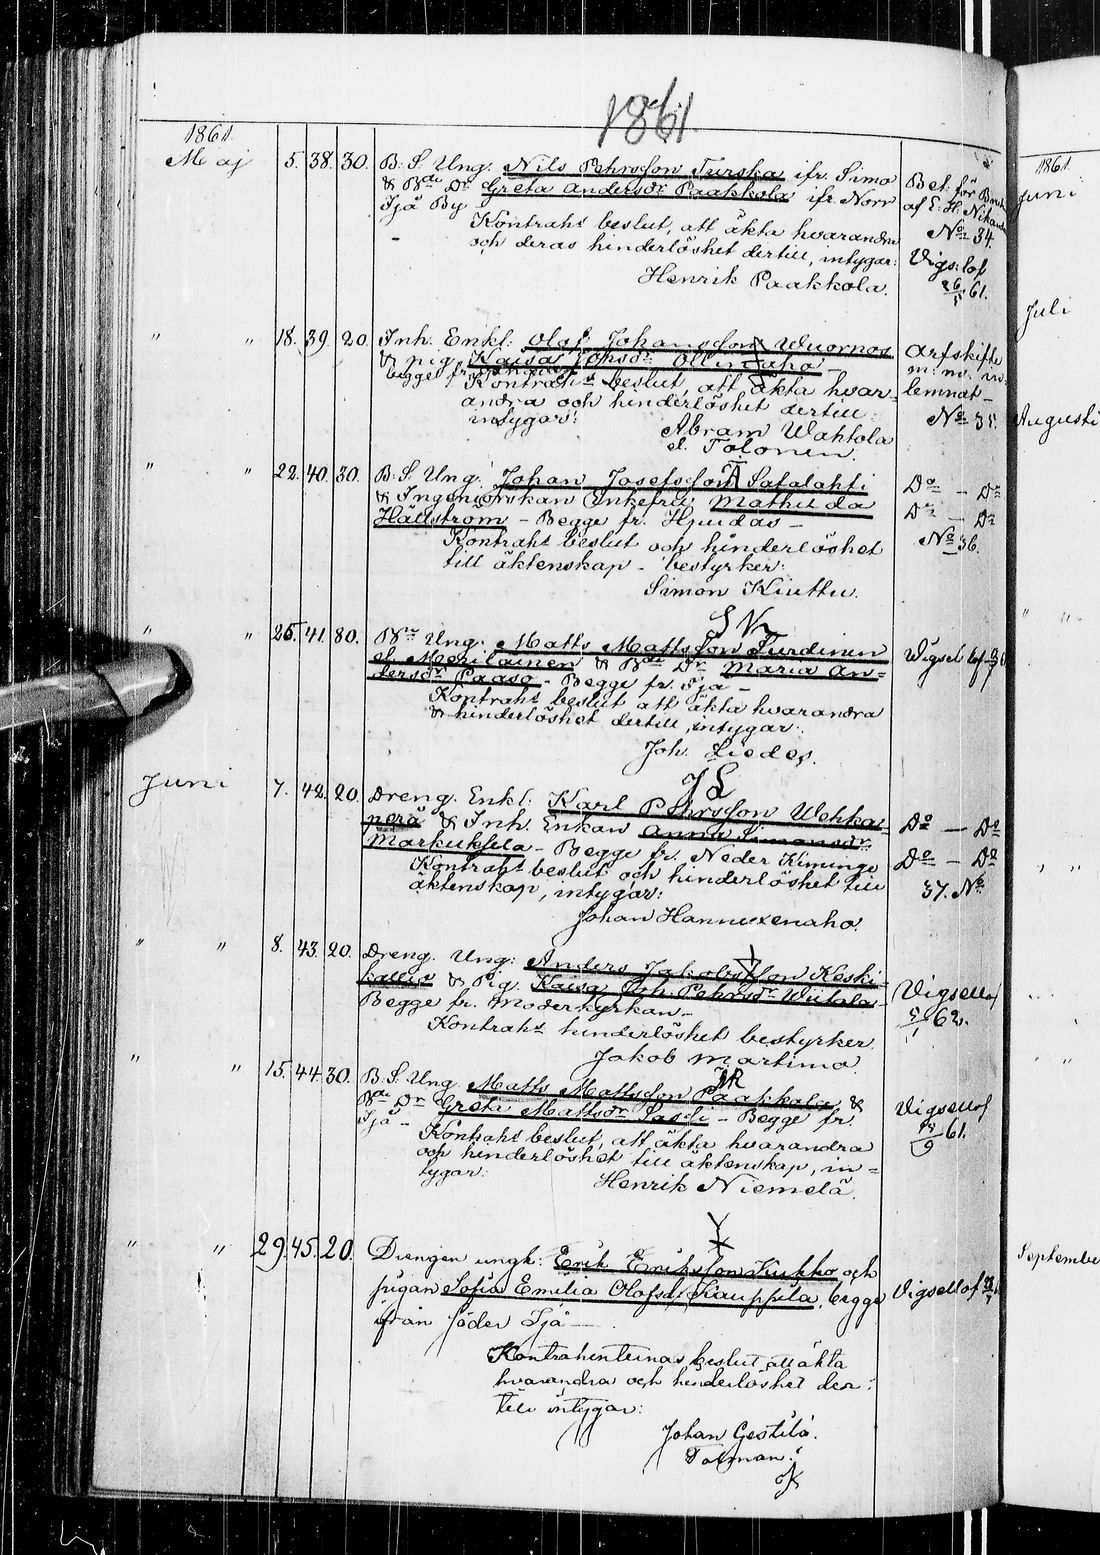 1861
1861.
Maj 5. 38. 30. B. S. Ung. Nils Pehrsson Turska ifr. Simo
& Bde Dr Greta Andersdr Paakkola ifr. Norr
Ijä By
Kontrahs beslut, att äkta hvarandra
och deras hinderlöshet dertill, intygar:
Henrik Paakkola.
Bet. för
af E. H.
No 34.
Vigs: lof
26/5 61.
" " 18. 39. 20. Inh. Enkl. Olof Johansson Wuornos
& pig. Kaisa Johsdr Ollinaho
begge fr.
Kontrahs beslut, att äkta hvar-
andra och hinderlöshet dertill:
intygar:
Abram Wahtola
el. Tolonen.
Arfskifte
lemnat
No 35.
" " 22. 40. 30. B. S. Ung. Johan Josefsson Satalahti
& Ingeniörskan Enkefru Mathilda
Hällström - Begge fr. Hjuidas -
Kontrahs beslut och hinderlöshet
till äktenskap - bestyrker:
Simon Kiuttu.
Do - Do
Do - Do
No 36.
S K
" " 25. 41. 80. Bde Ung. Matts Mattsson Turdinen
el. Merilainen & Bde Dr Maria An-
dersdr Paaso - Begge fr. Ijä -
Kontrahs beslut att äkta hvarandra
& hinderlöshet dertill, intygar:
Joh. Liedes.
Wigsel lof
J L
Juni 7. 42. 20. Dreng. Enkl. Karl Pehrsson Wehka-
perä & Inh. Enkan Anna Simonsdr
Markuksela - Begge fr. Neder Kiminge
Kontrahs beslut och hinderlöshet till
äktenskap, intygar:
Johan Hannuxenaho.
Do - Do
Do - Do
37. No
" " 8. 43. 20. Dreng. Ung. Anders Jakobsson Keski-
kallio & Pig. Kaisa Joh. Pehrsdr Wiitala
Begge fr. Moderkyrkan -
Kontrahs hinderlöshet bestyrker.
Jakob Martimo.
Vigsellof
5/1 62.
J R
" " 15. 44. 30. B. S. Ung. Matts Mattsson Paakkola &
Bde Dr Greta Mattsdr Sassi - Begge fr.
Ijä -
Kontrahs beslut, att äkta hvarandra
och hinderlöshet till äktenskap, in=
tygar:
Henrik Niemelä.
Vigsellof
/9 61.
" " 29. 45. 20. Drengen ungk: Erik Eriksson Kukko och
pigan Sofia Emilia Olofsdr Kauppila, begge
ifrån Söder Ijä -
Kontrahenternas beslut att äkta
hvarandra och hinderlöshet der-
till intygar:
Johan Gestilä.
Tolman.
Vigsellof
1861.
Juni
Juli
Augusti
September